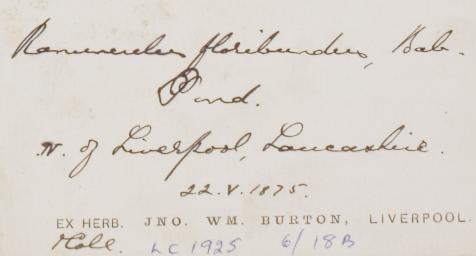 Ranunculus floribundus, Bab.
Pond.
N. of Liverpool, Lancashire.
22.V.1875.
EX HERB. JNO. WM. BURTON, LIVERPOOL.
LC 1925 6/18B